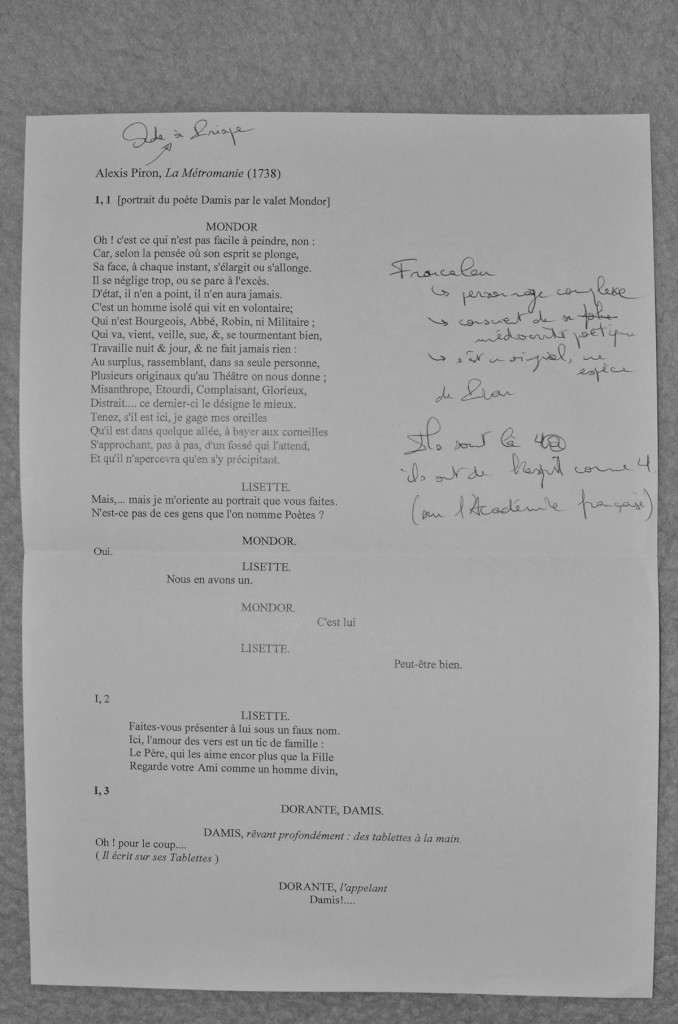 Ode à Priape
Alexis Piron, La Métromanie (1738)
I, 1 [portrait du poète Damis par le valet Mondor]
MONDOR
Oh ! c'est ce qui n'est pas facile à peindre, non :
Car, selon la pensée où son esprit se plonge,
Sa face, à chaque instant, s'élargit ou s'allonge.
Il se néglige trop, ou se pare à l'excès.
D'état, il n'en a point, il n'en aura jamais.
C'est un homme isolé qui vit en volontaire;
Qui n'est Bourgeois, Abbé, Robin, ni Militaire ;
Qui va, vient, veille, sue, &, se tourmentant bien,
Travaille nuit & jour, & ne fait jamais rien :
Au surplus, rassemblant, dans sa seule personne,
Plusieurs originaux qu'au Théâtre on nous donne ;
Misanthrope, Etourdi, Complaisant, Glorieux,
Distrait.... ce dernier-ci le désigne le mieux.
Tenez, s'il est ici, je gage mes oreilles
Qu'il est dans quelque allée, à bayer aux corneilles
S'approchant, pas à pas, d'un fossé qui l'attend,
Et qu'il n'apercevra qu'en s'y précipitant.
LISETTE.
Mais,... mais je m'oriente au portrait que vous faites.
N'est-ce pas de ces gens que l'on nomme Poètes ?
MONDOR.
Oui.
LISETTE.
Nous en avons un.
MONDOR.
C'est lui
LISETTE.
Peut-être bien.
I, 2
LISETTE.
Faites-vous présenter à lui sous un faux nom.
Ici, l'amour des vers est un tic de famille :
Le Père, qui les aime encor plus que la Fille
Regarde votre Ami comme un homme divin,
I, 3
DORANTE, DAMIS.
DAMIS, rêvant profondément : des tablettes à la main.
Oh ! pour le coup....
( Il écrit sur ses Tablettes )
DORANTE, l'appelant
Damis!....
Francaleu
↳ personnage complexe
↳ conscient de sa
médiocrité poétique
↳ c'est un original, une
espèce
de
Ils sont là 40
ils ont de l'esprit comme 4.
(sur l'Académie française)